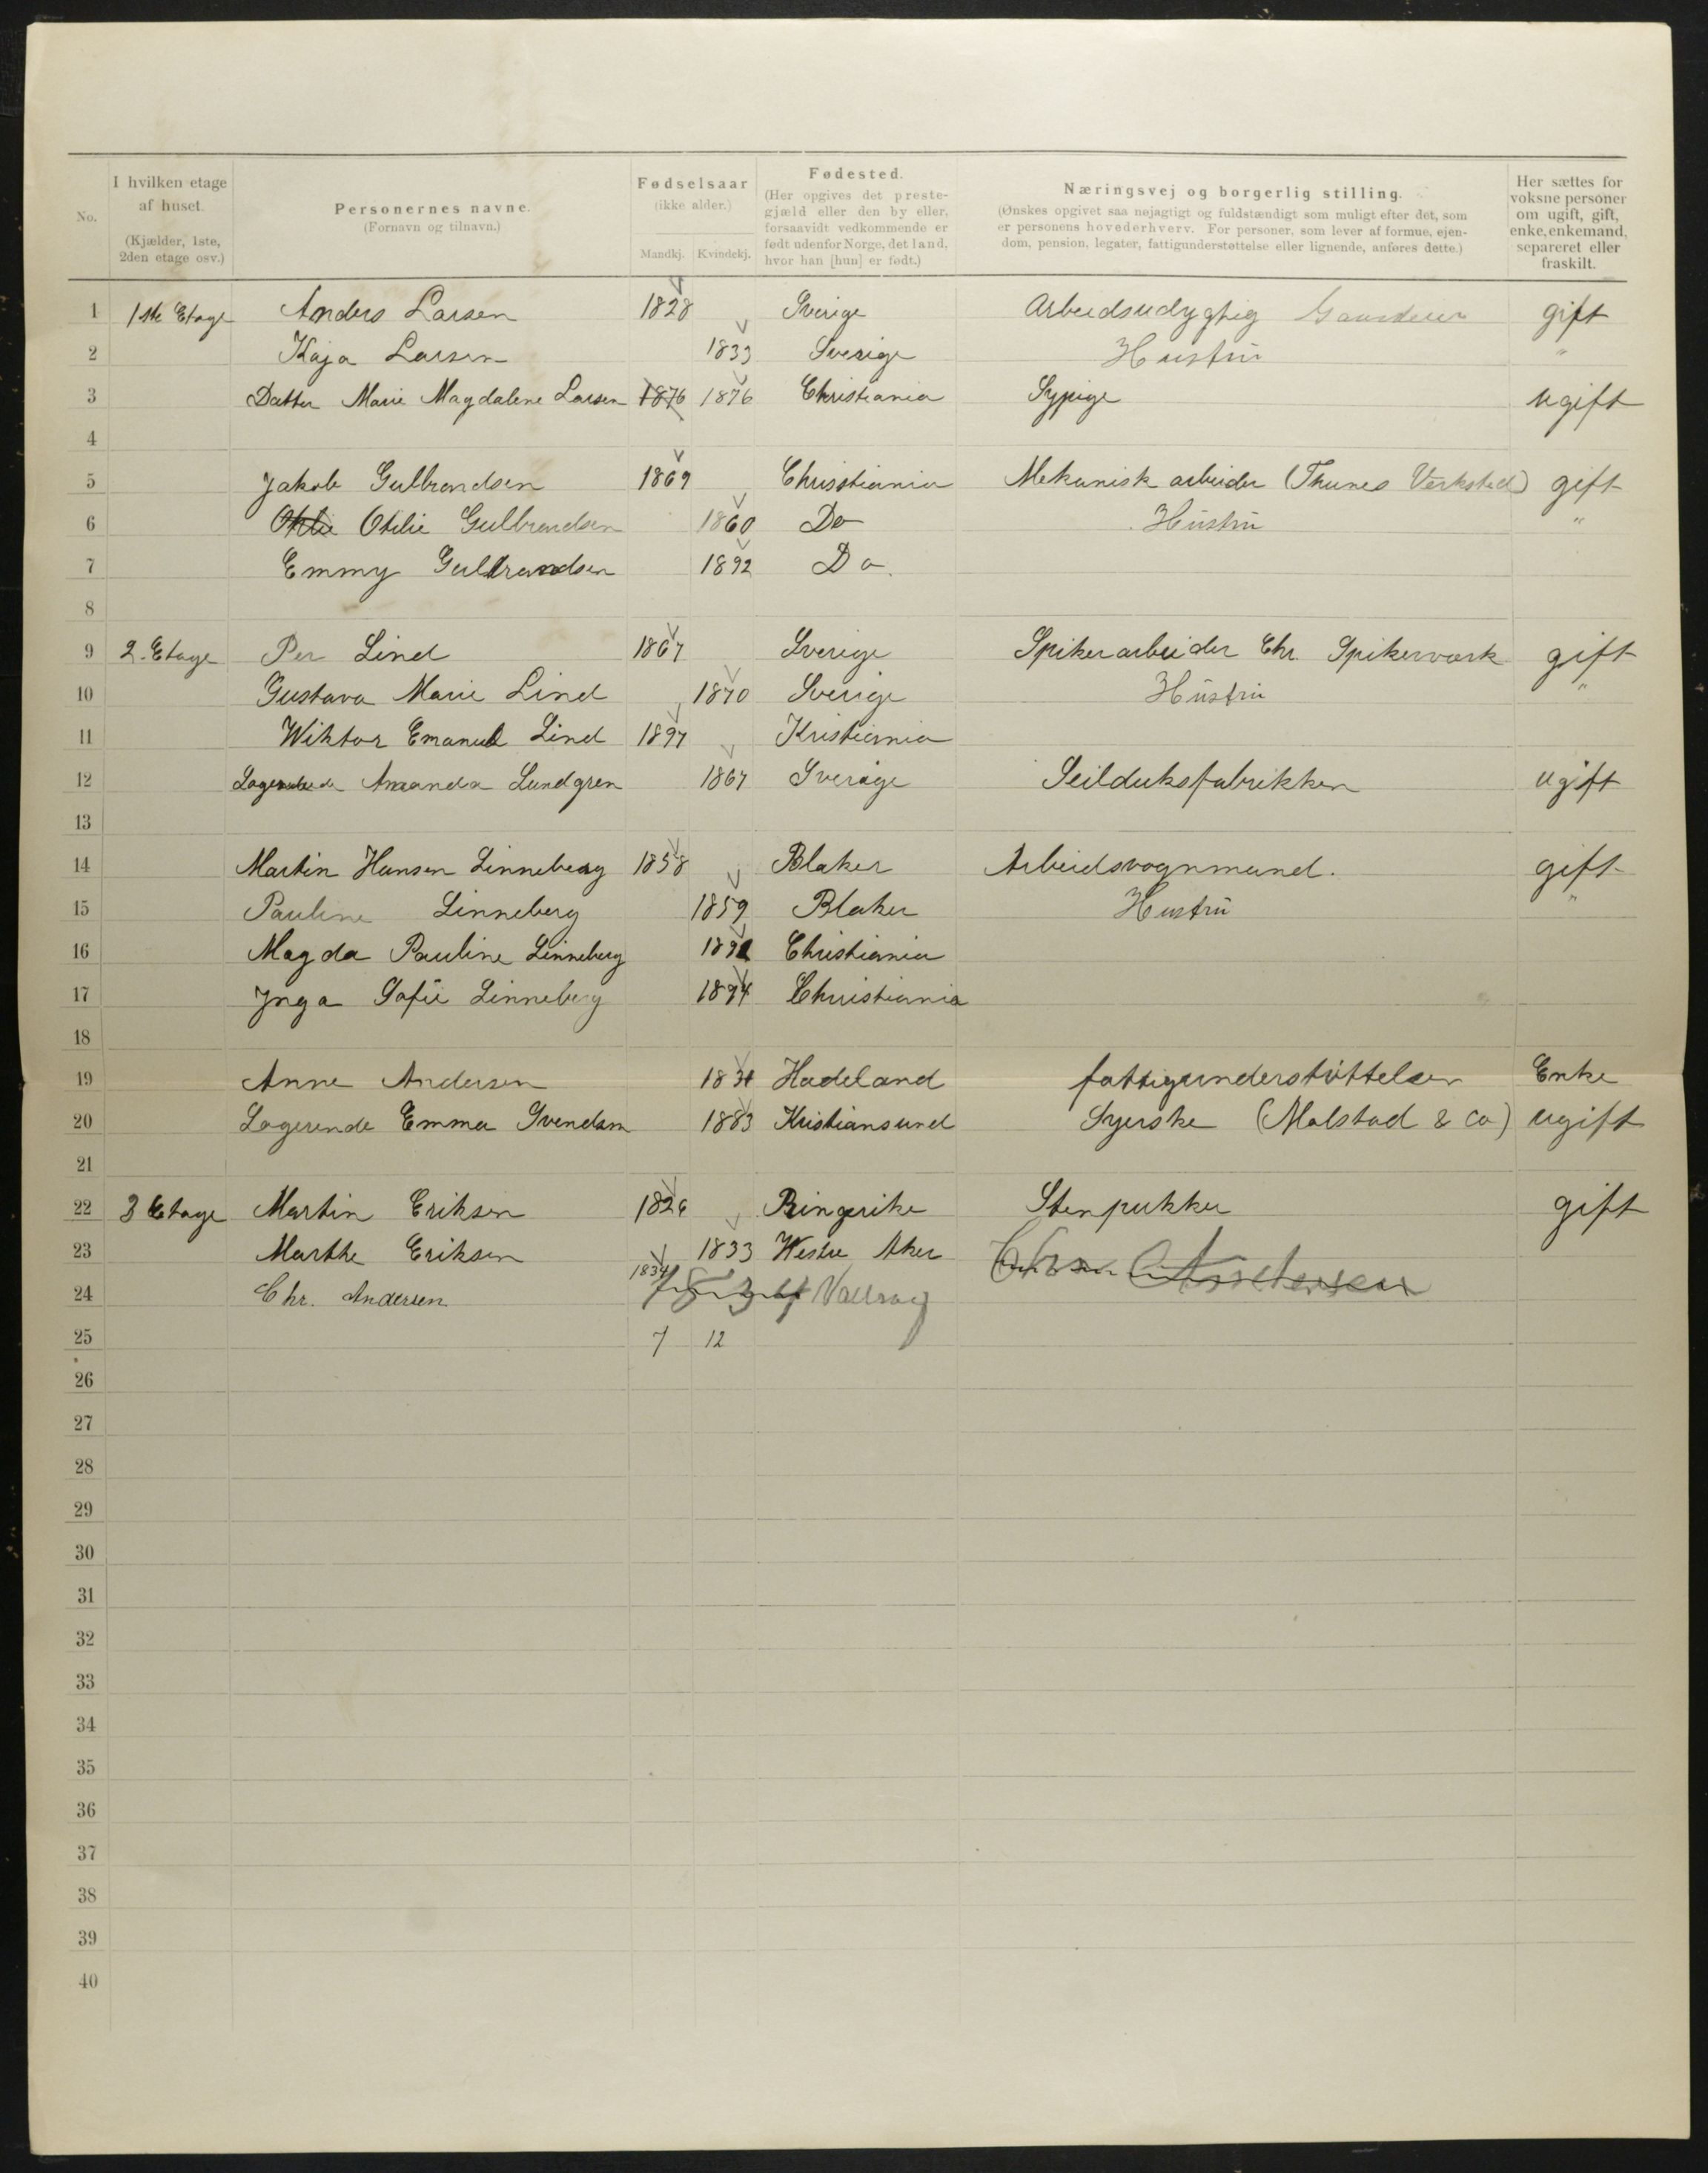 No.
I hvilken etage af huset. (Kjælder, 1ste, 2den etage osv.)
Personernes navne. (Fornavn og tilnavn.)
Fødselsaar (ikke alder.) Mandkj. Kvindekj.
Fødested. (Her opgives det prestegjæld eller den by eller, forsaavidt vedkommende er født udenfor Norge, det land, hvor han [hun] er født.)
Næringsvej og borgerlig stilling. (Ønskes opgivet saa nøjagtigt og fuldstændigt som muligt efter det, som er personens hovederhverv. For personer, som lever af formue, ejendom, pension, legater, fattigunderstøttelse eller lignende, anføres dette.)
Her sættes for voksne personer om ugift, gift, enke, enkemand, separeret eller fraskilt.
1 1ste Etage Anders Larsen 1828 Sverige Arbeidsudygtig gift
2 Kaja Larsen 1833 Sverige Hustru "
3 Datter Marie Magdalene Larsen 1876 1876 Christiania Sypige ugift
4
5 Jakob Gulbrandsen 1869 Chrisstiania Mekanisk arbeider (Thunes Verksted) gift
6 Otilie Gulbrandsen 1860 Do Hustru "
7 Emmy Gulbrandsen 1892 Do.
8
9 2. Etage Per Lind 1867 Sverige Spikerarbeider Chr. Spikerværk gift
10 Gustava Marie Lind 1870 Sverige Hustru "
11 Wiktor Emanuel Lind 1897 Kristiania
12 Amanda Lundgren 1867 Sverige Seilduksfabrikken ugift
13
14 Martin Hansen Linneberg 1858 Blaker Arbeidsvognmand. gift
15 Pauline Linneberg 1859 Blaker Hustru "
16 Magda Pauline Linneberg Christiania
17 Inga Sofie Linneberg 1894 Christiania
18
19 Anne Andersen Hadeland fattigunderstöttelse Enke
20 Logerende Emma Svendsen 1883 Kristiansund Syerske (Molstad & Co) ugift
21
22 3 Etage Martin Eriksen 1826 Ringerike Stenpukker gift
23 Marthe Eriksen 1833 Westre Aker
24 Chr. Andersen 1834 1834
25 7 12
26
27
28
29
30
31
32
33
34
35
36
37
38
39
40